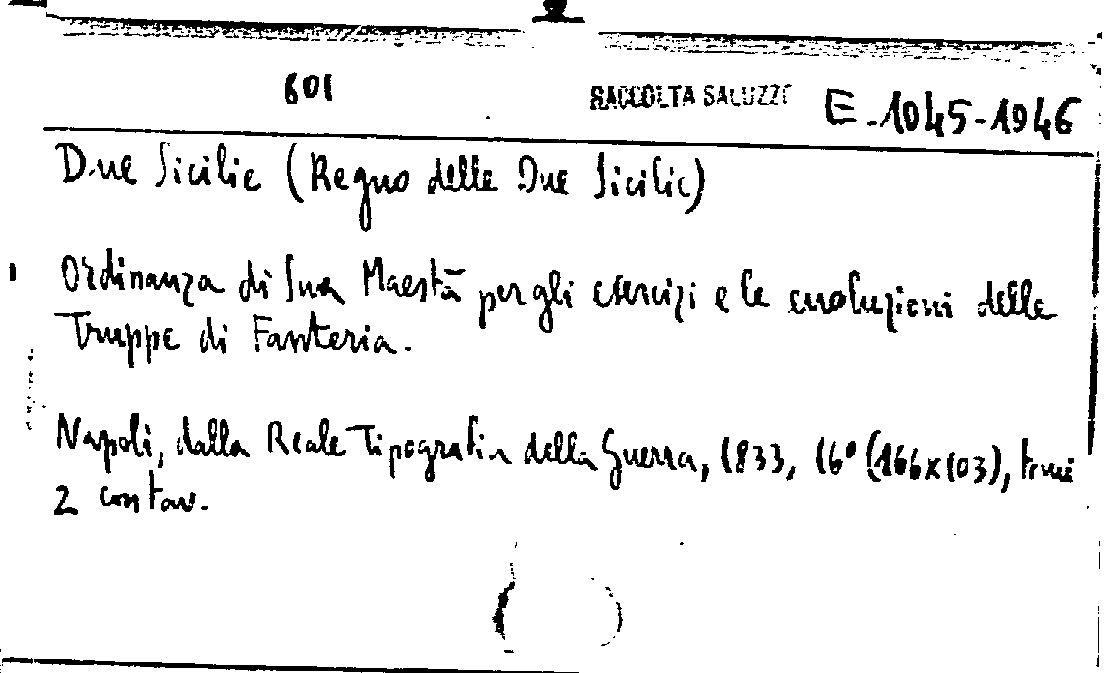 601 RACCOLTA SALUZZO E-1045-1946
Due Sicilie (Regno delle Due Sicilie)
Ordinanza di Sua Maestà per gli esercizi e le evoluzioni delle
Truppe di Fanteria.
Napoli, dalla Reale Tipografia della Guerra, 1833, 16° (166x103), tomi
2 con tav.